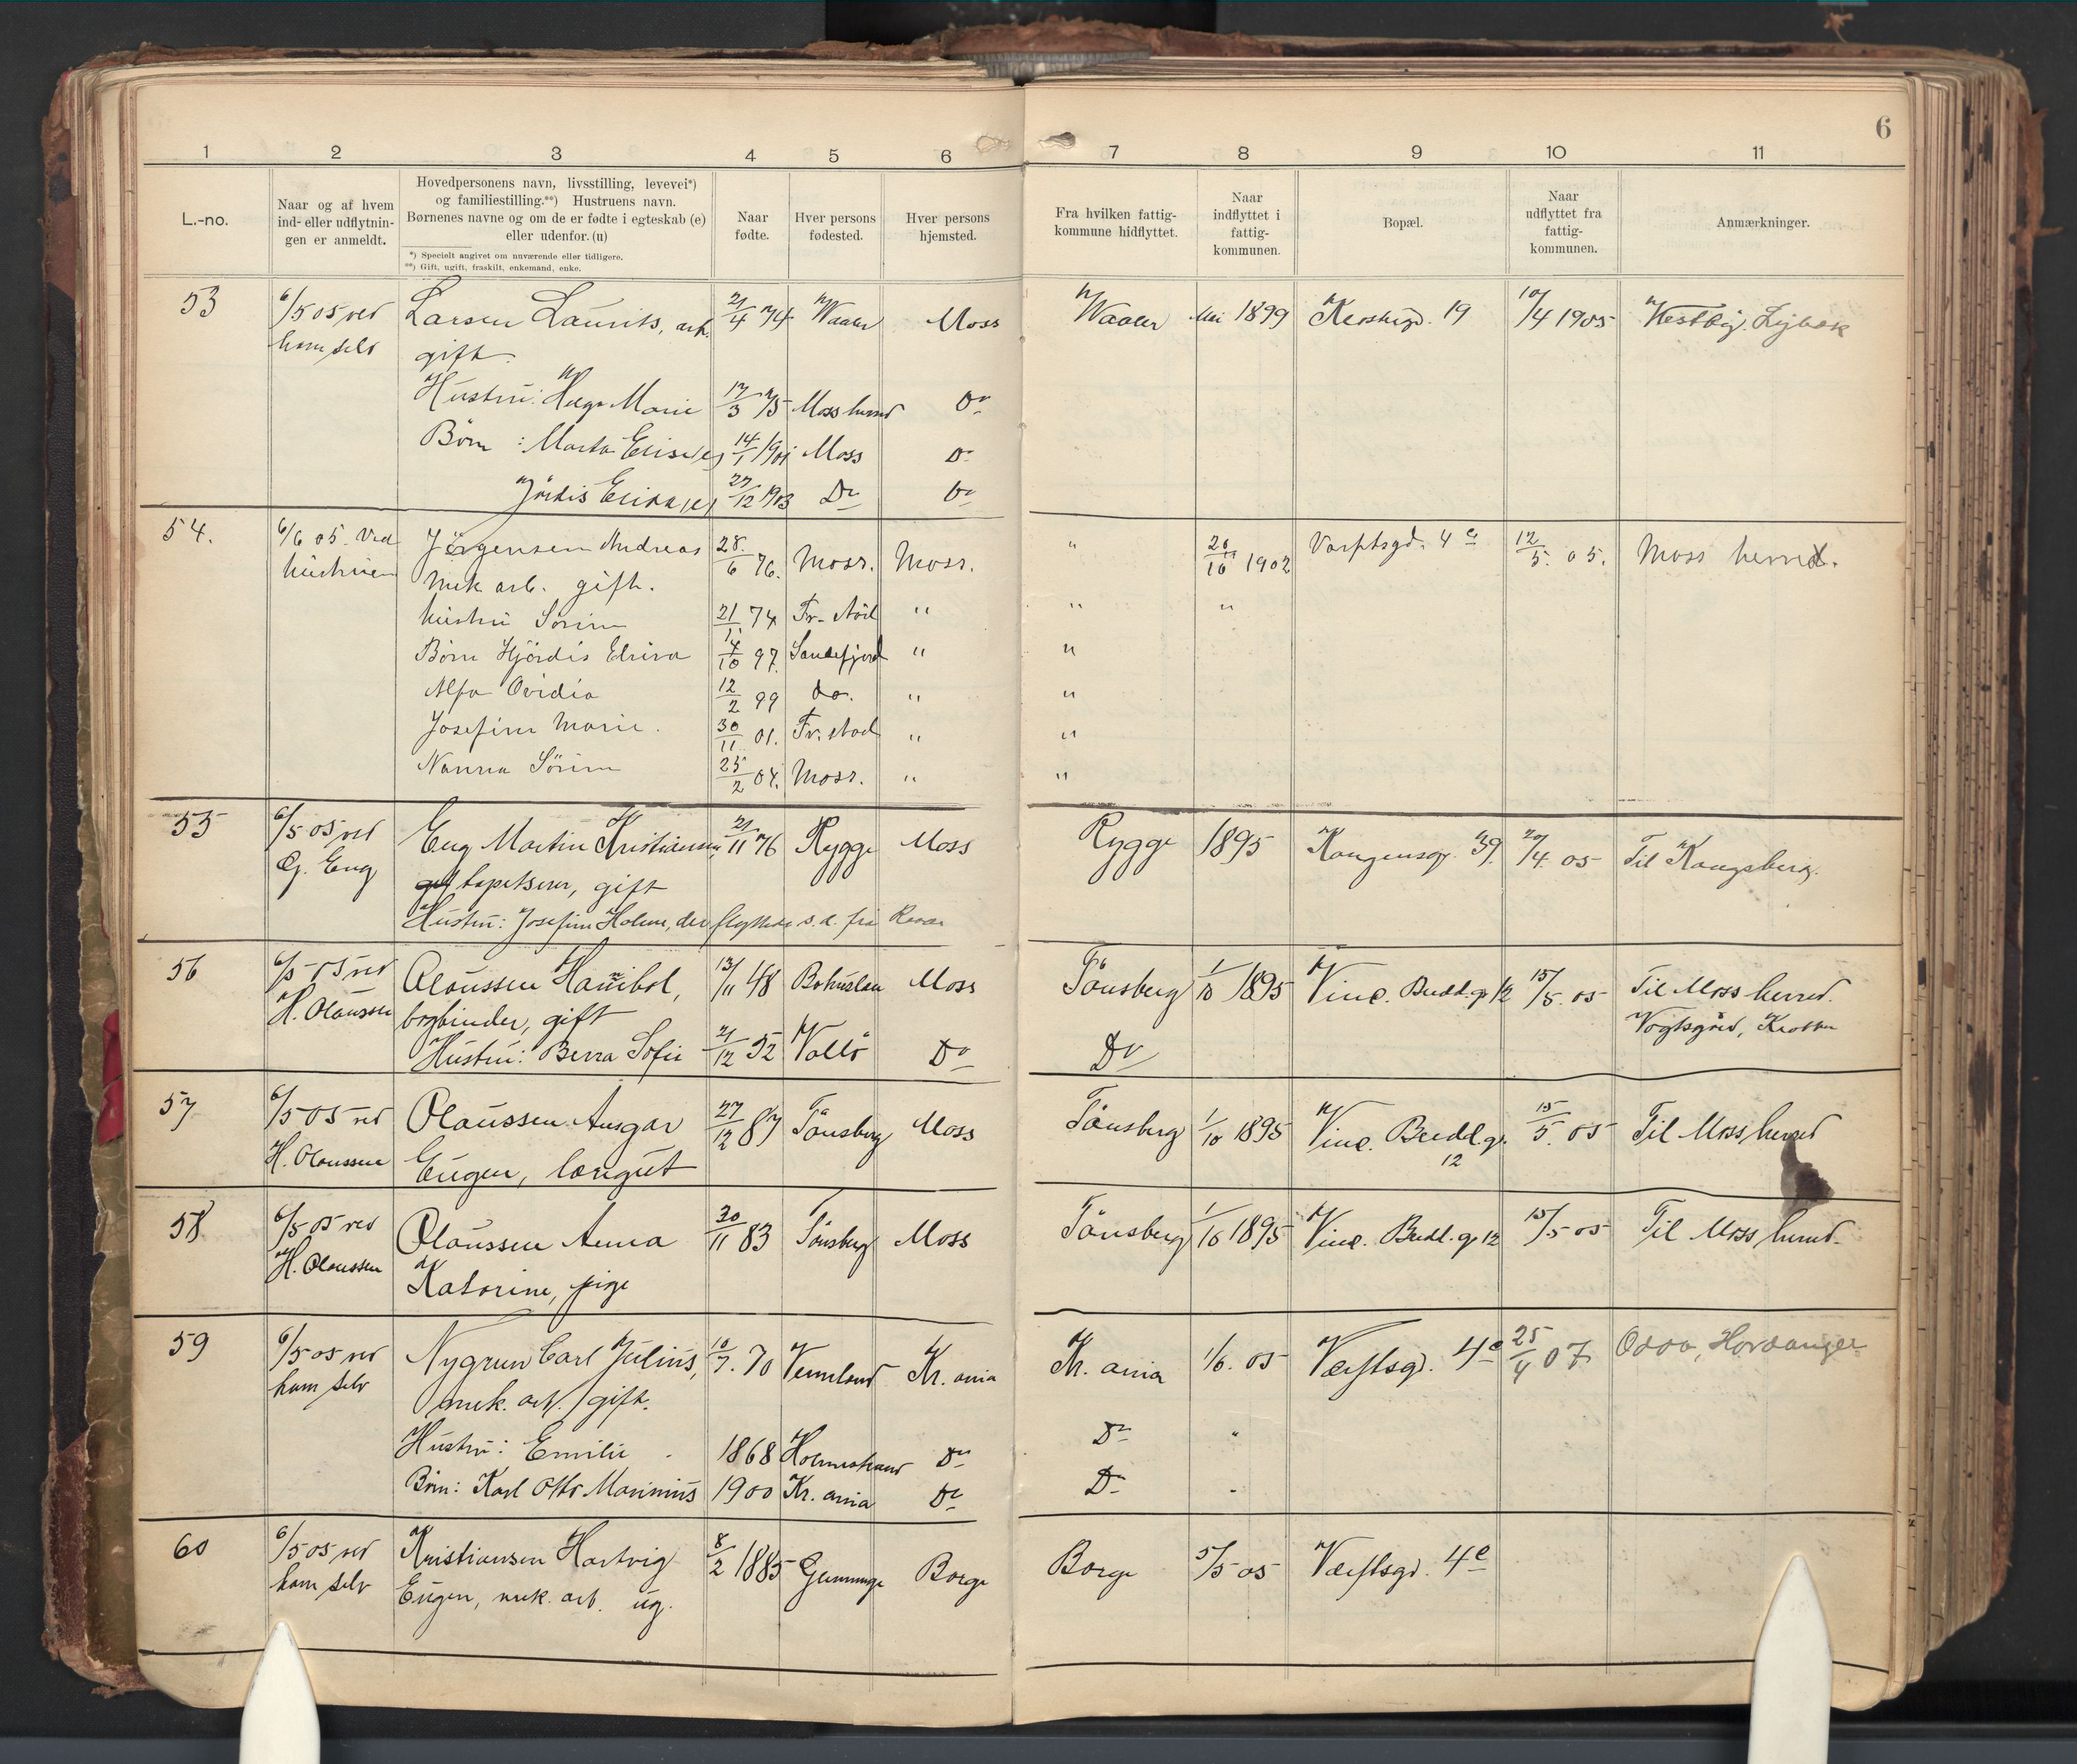 6
1 2 3 4 5 6 7 8 9 10 11
L.-no.
Naar og af hvem
ind- eller udflytnin-
gen er anmeldt.
Hovedpersonens navn, livsstilling, levevei*)
og familiestilling.**) Hustruens navn.
Børnenes navne og om de er fødte i egteskab (e)
eller udenfor. (u)
*) Specielt angivet om nuværende eller tidligere.
**) Gift, ugift, fraskilt, enkemand, enke.
Naar
fødte.
Hver persons
fødested.
Hver persons
hjemsted.
Fra hvilken fattig-
kommune hidflyttet.
Naar
indflyttet i
fattig-
kommunen.
Bopæl.
Naar
udflyttet fra
fattig-
kommunen.
Anmærkninger.
53 6/5 05 ved Larsen Laurits, arb. 21/4 74 Waaler Moss Waaler Mai 1899 19 10/4 1905 Vestby
ham selv gift.
Hustru: Marie 17/3 75 Moss herred Do
Børn: Marta Elise (e) 14/1 1901 Moss Do
Jördis (e) 27/12 1903 Do Do
54. 6/6 05. Ved Jørgensen Andreas 28/6 76. Moss. Moss. " 20/10 1902 Værftsgd. 4 e 12/5. 05. Moss herred.
hustruen mek arb. gift.
hustru Sörine 21/11 74 Fr.stad " " "
Børn Hjördis 14/10 97. Sandefjord " "
Alfa Ovidia 12/2 99 do. " "
Josefine Marie. 30/11 01. Fr.stad " "
Nanna Sörine 25/2 04. Moss. " "
55 6/5 05 ved Eng Martin Kristiansen, 21/11 76 Rygge Moss Rygge 1895 Kongensg. 39. 20/4. 05 Til Kongsberg.
Eng tapetserer, gift
Hustru: Josefine Holm, der flyttede s. d. fra
56 6/5 05 ved Olaussen Hanibol, 13/11 48 Bohuslen Moss Tönsberg 1/10 1895 Vinc. Budd.g. 12 15/5. 05 Til Moss herred.
H. Olaussen bogbinder, gift Vogtsgård,
Hustru: Berra Sofie 21/12 52 Vallö Do Do
57 6/5 05 ved Olaussen Ansgar 27/12 87 Tönsberg Moss Tönsberg 1/10 1895 Vinc. Budd.g. 15/5. 05 Til Moss herred
H. Olaussen Eugen, 12
58 6/5 05 ved Olaussen Anna 30/11 83 Tönsberg Moss Tönsberg 1/10 1895 Vinc. Budd.g. 12 15/5 05 Til Moss herred.
H. Olaussen Katorine, pige
59 6/5 05 ved Nygren Carl Julius, 10/7. 70 Vermland Kr.ania Kr.ania 1/6. 05 Værftsgd. 4 e 25/4 07 Odda, Hardanger
ham selv mek. arb. gift.
Hustru: Emilie 1868 Holmestrand Do Do "
Börn: Karl Otto Marinius 1900 Kr.ania Do Do "
60 6/5 05 ved Kristiansen Hartvig 8/2 1885 Glemminge Borge Borge 5/5 05 Værftsgd. 4 e
ham selv Eugen, mek. arb. ug.